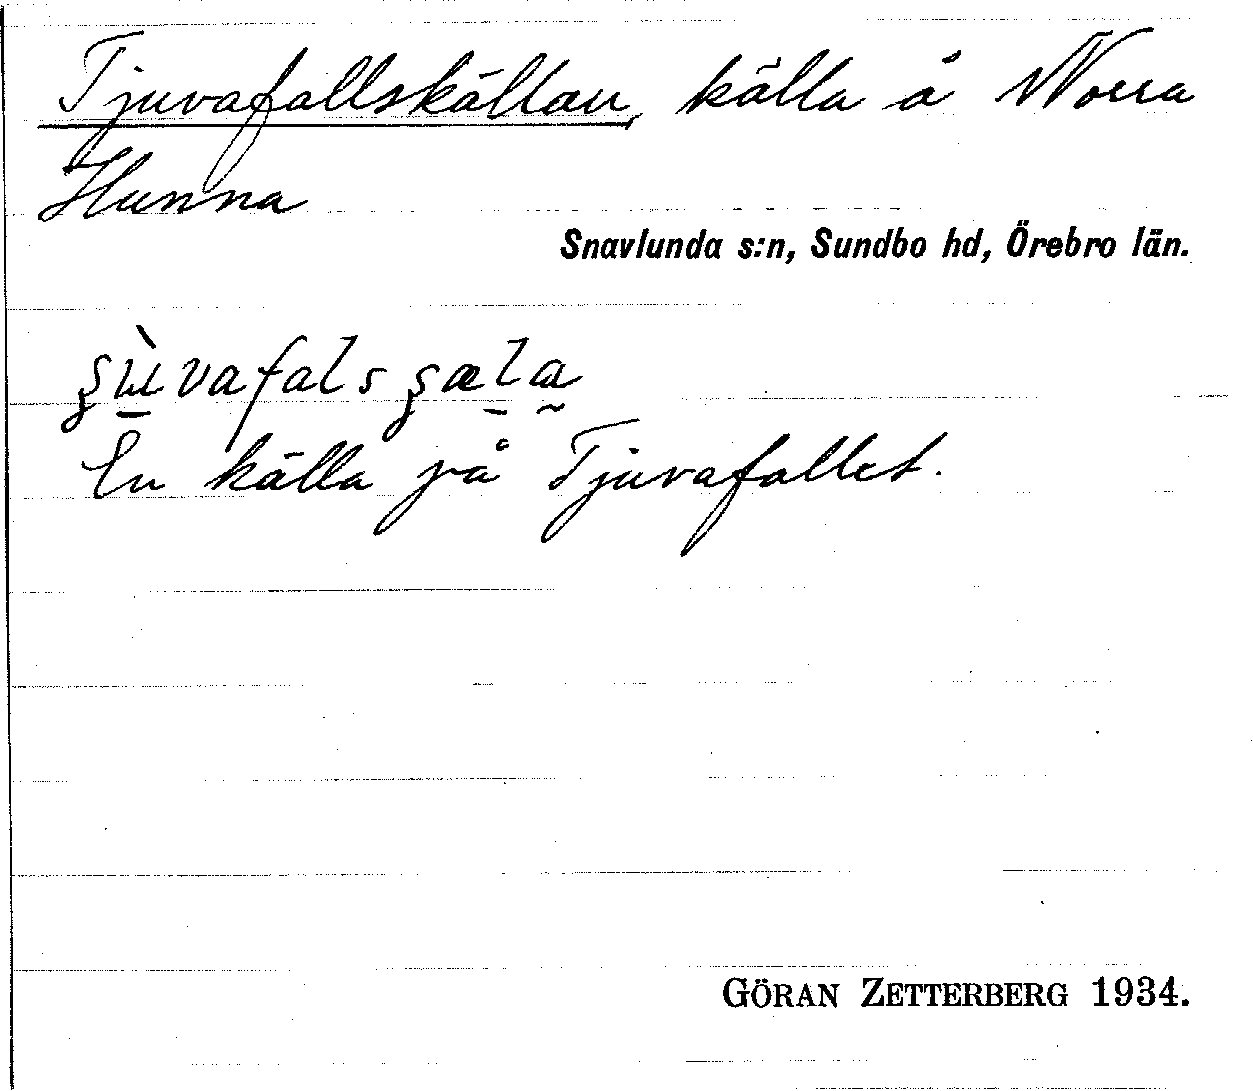 Tjuvafallskällan, källa å Norra
Hunna
Snavlunda s:n, Sundbo hd, Örebro län.
En källa på Tjuvafallet.
GÖRAN ZETTERBERG 1934.